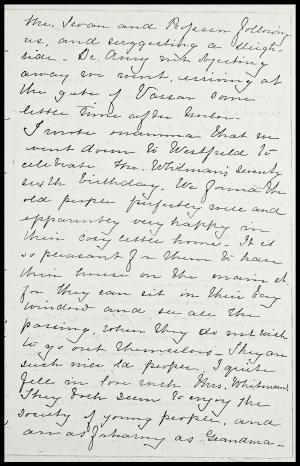 Mr. Swan and Professor following
us, and suggesting a sleigh-
ride. Dr. Avery not objecting
away we went, arriving at
the gate of Vassar some
little time after twelve.
I wrote mamma that we
went down to Westfield to
celebrate Mr. Whitman's seventy
sixth birthday. We found the
old people perfectly well and
apparently very happy in
their cosy little home. It is
so pleasant for them to have
their house on the main st.
for they can sit in their bay
window and see all the
passing, when they do not wish
to go out themselves. They are
such nice old people. I quite
fell in love with Mrs. Whitman.
They both seem to enjoy the
society of young people, and
are as charming as Grandma-